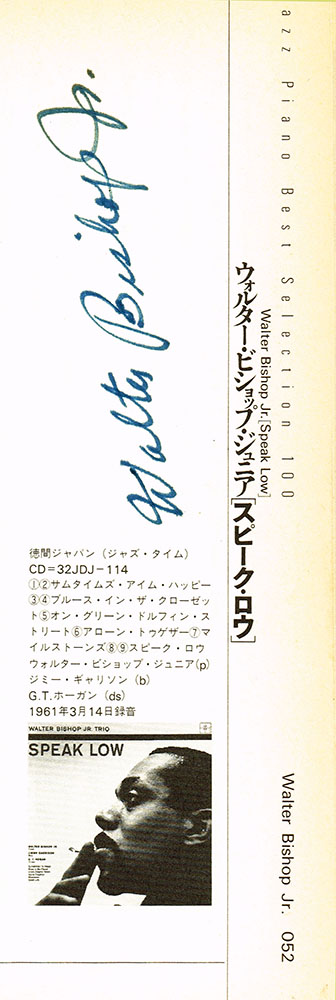 azz Piano Best Selection 100
Walter Bishop Jr.[Speak Low]
ウォルター・ビショップ・ジュニア[スピーク・ロウ]
Walter Bishop Jr. 052
Walter Bishop Jr.
徳間ジャパン（ジャズ・タイム）
CD=32JDJ-114
①②サムタイムズ・アイム・ハッピー
③④ブルース・イン・ザ・クローゼッ
ト⑤オン・グリーン・ドルフィン・ス
トリート⑥アローン・トゥゲザー⑦マ
イルストーンズ⑧⑨スピーク・ロウ
ウォルター・ビショップ・ジュニア(p)
ジミー・ギャリソン（b）
G.T.ホーガン（ds）
1961年3月14日録音
WALTER BISHOP JR. TRIO
SPEAK LOW
WALTER BISHOP JR.
JIMMY GARRISON
G. T. HOGAN